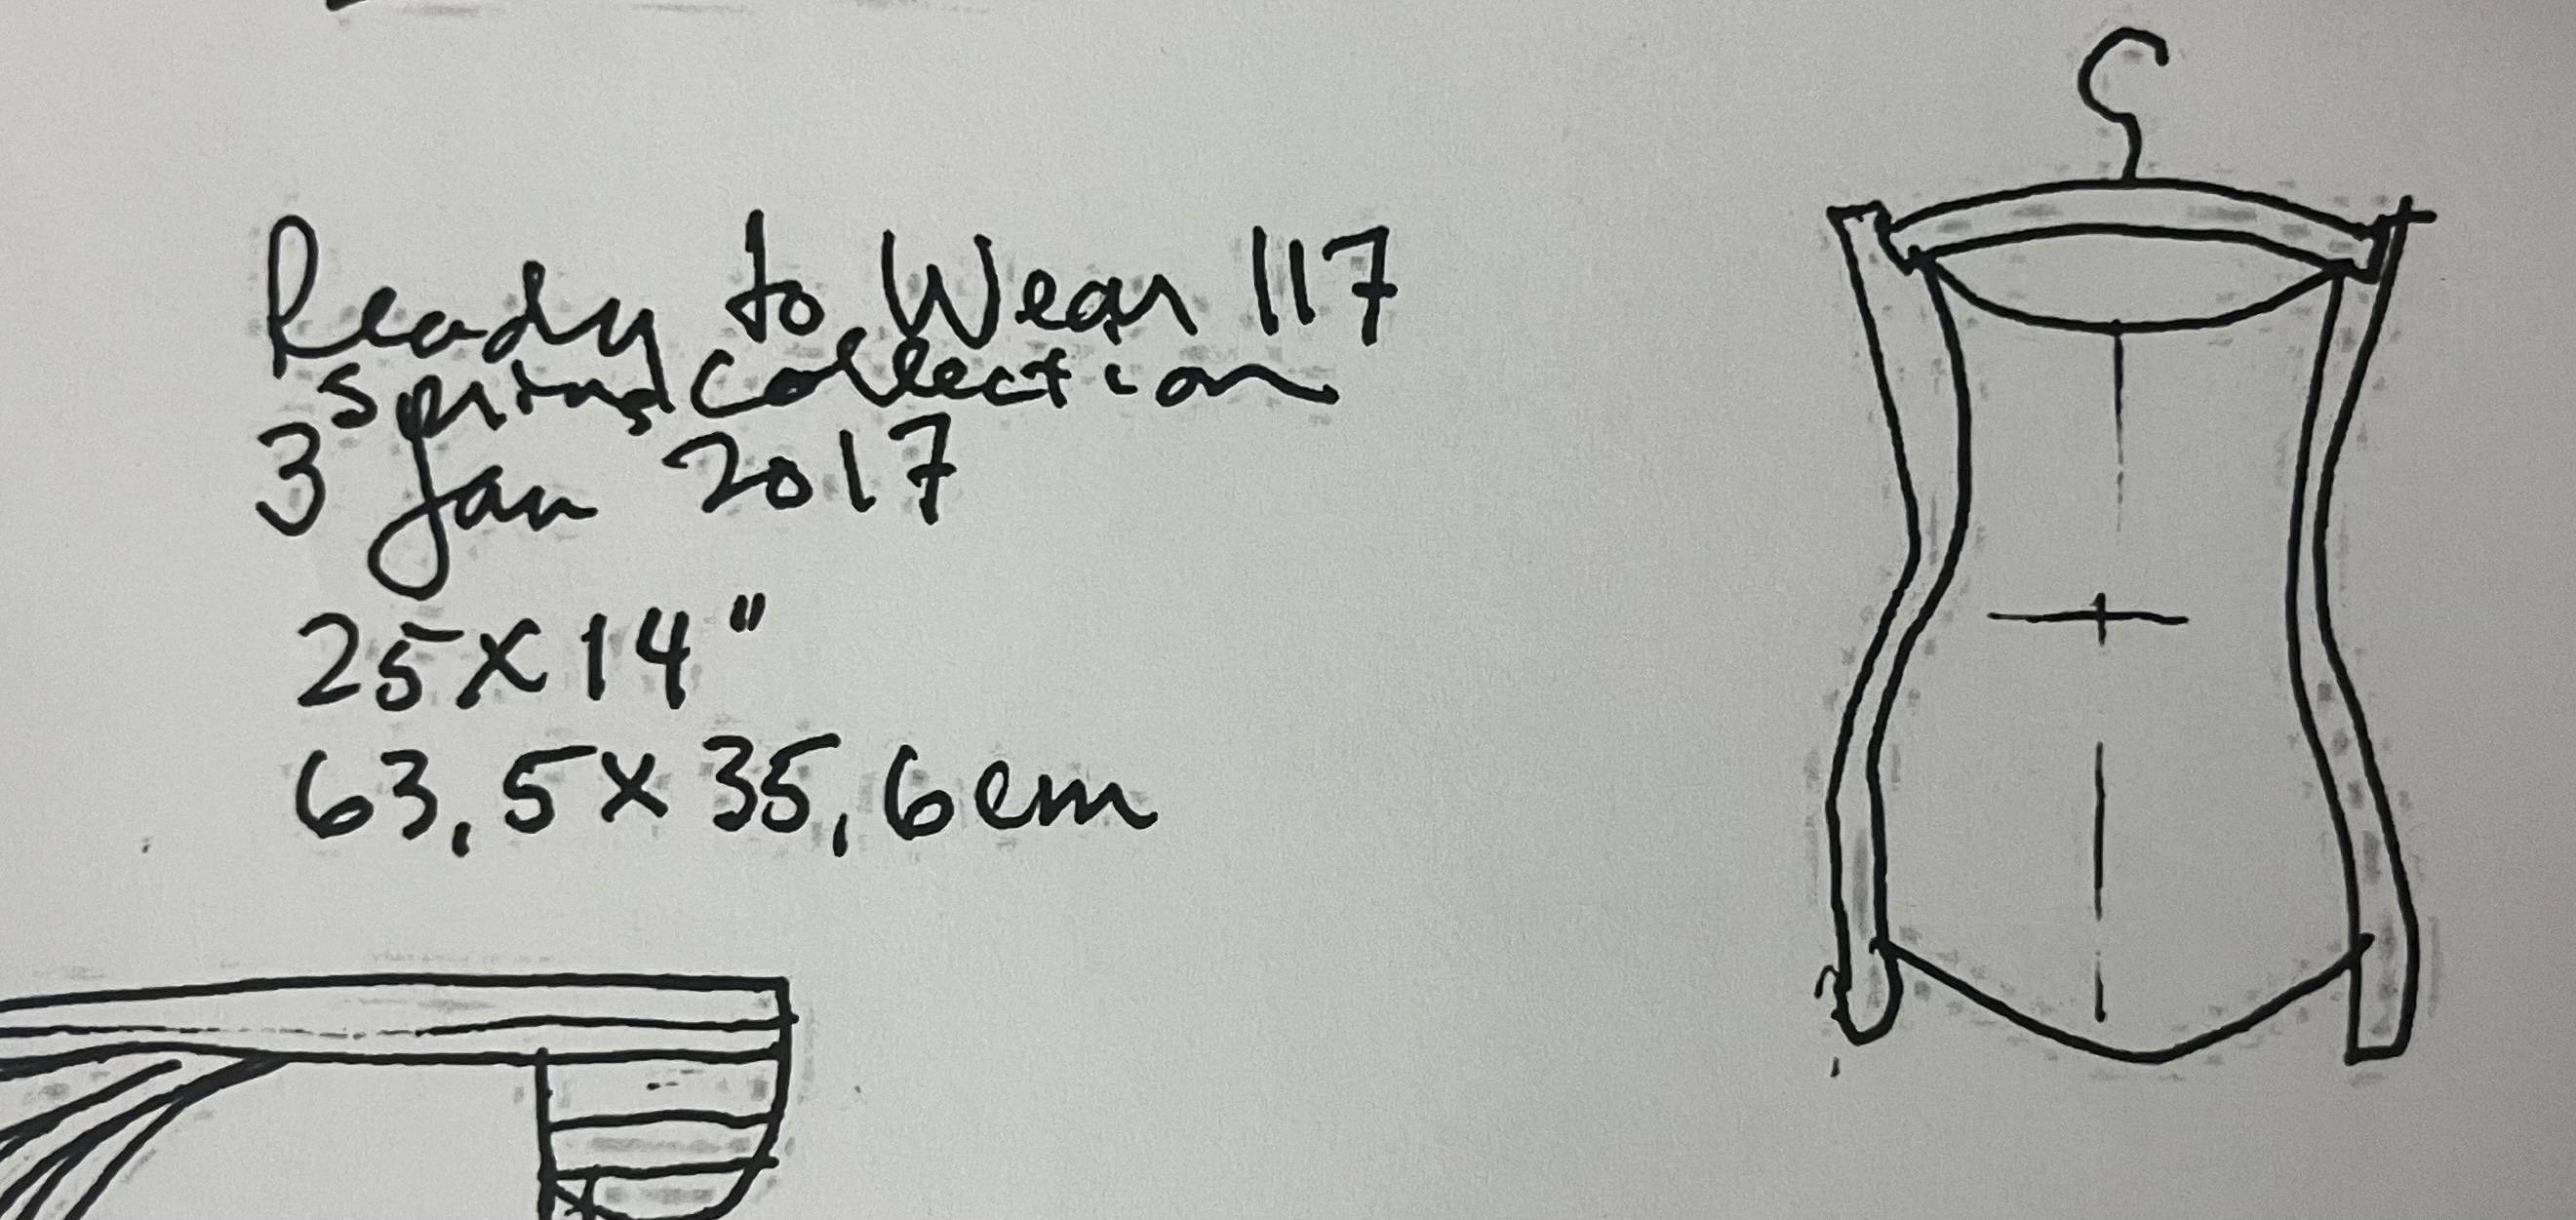 Ready to Wear 117
Spring Collection
3 Jan 2017
25x14"
63,5x35,6cm